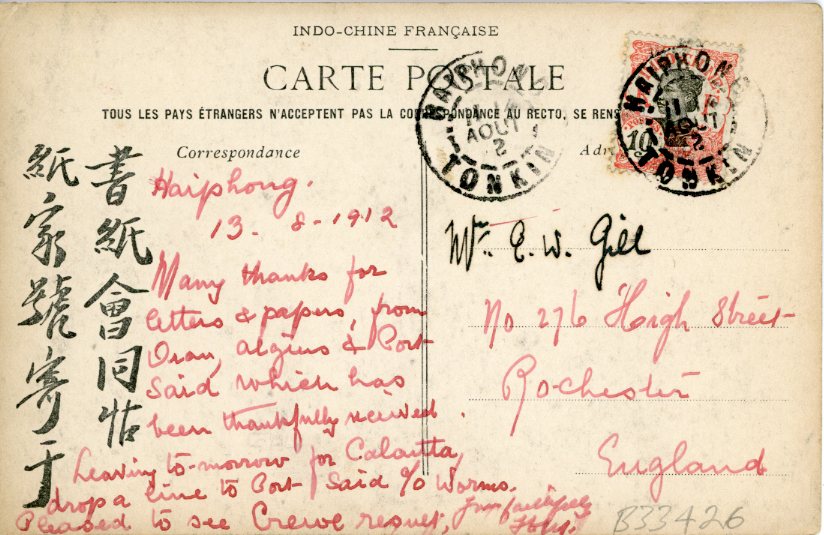 INDO-CHINE FRANÇAISE
CARTE POSTALE
TOUS LES PAYS ÉTRANGERS N'ACCEPTENT PAS LA CORRESPONDANCE AU RECTO, SE RENS
Correspondance
Adr
HAIPHONG
AOUT
12
TONKIN
HAIPHONG
11
AOUT
12
TONKIN
10
書紙會同怗
紙家號寄于
Haiphong.
13-8-1912
Many thanks for
letters & papers, from
Oran, Algiers & Port
Said which has
been thankfully received.
Leaving to-morrow for Calcutta,
drop a line to Port Said c/o Worms.
Pleased to see Crewe request,
Mr. E. W. Gill
No 276 High Street
Rochester
England
B33426